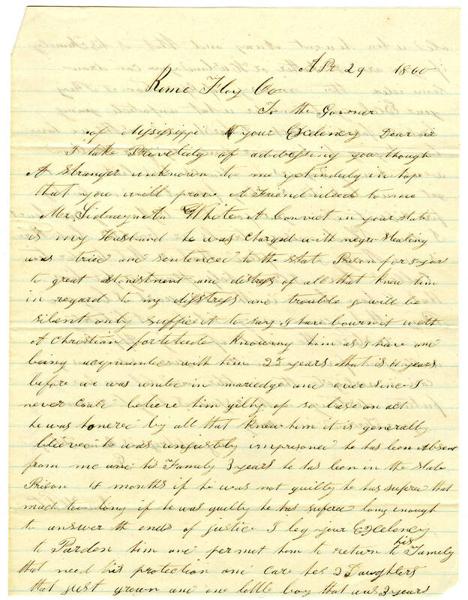 Apr 29 1860
Rome Floy Co
To the Govnor
of Mississippi your Exelency Dear
I take privelidg of addressing you though
A Stranger unknown to me yet in hope
that you will prove A Friend ideed to me
Mr White A Convict in your State
is my Husband he was Charged with negro Stealing
was tride and sentenced to the State Prison for
to great of all that knew him
in regard to my distress and trouble I will be
Silent only Suffice it to Say I have bourn it with
A Christian Knowing him as I have and
being with him 25 years that is 4 years
before we was united in and ever since I
never Could believe him gilty of So base an act
he was honerd by all that knew him it is generally
he was imprisoned he has been Absent
from me and his Family 3 years he has been in the State
Prison 4 months if he was not guilty he has sufered that
much too long if he was guilty he has sufered long enough
to answer the ends of justice I beg your Exelency
to Pardon him and permit him to return to his Family
that need his protection and Care he 2 Daughters
that just grown and one little boy that and 3 years